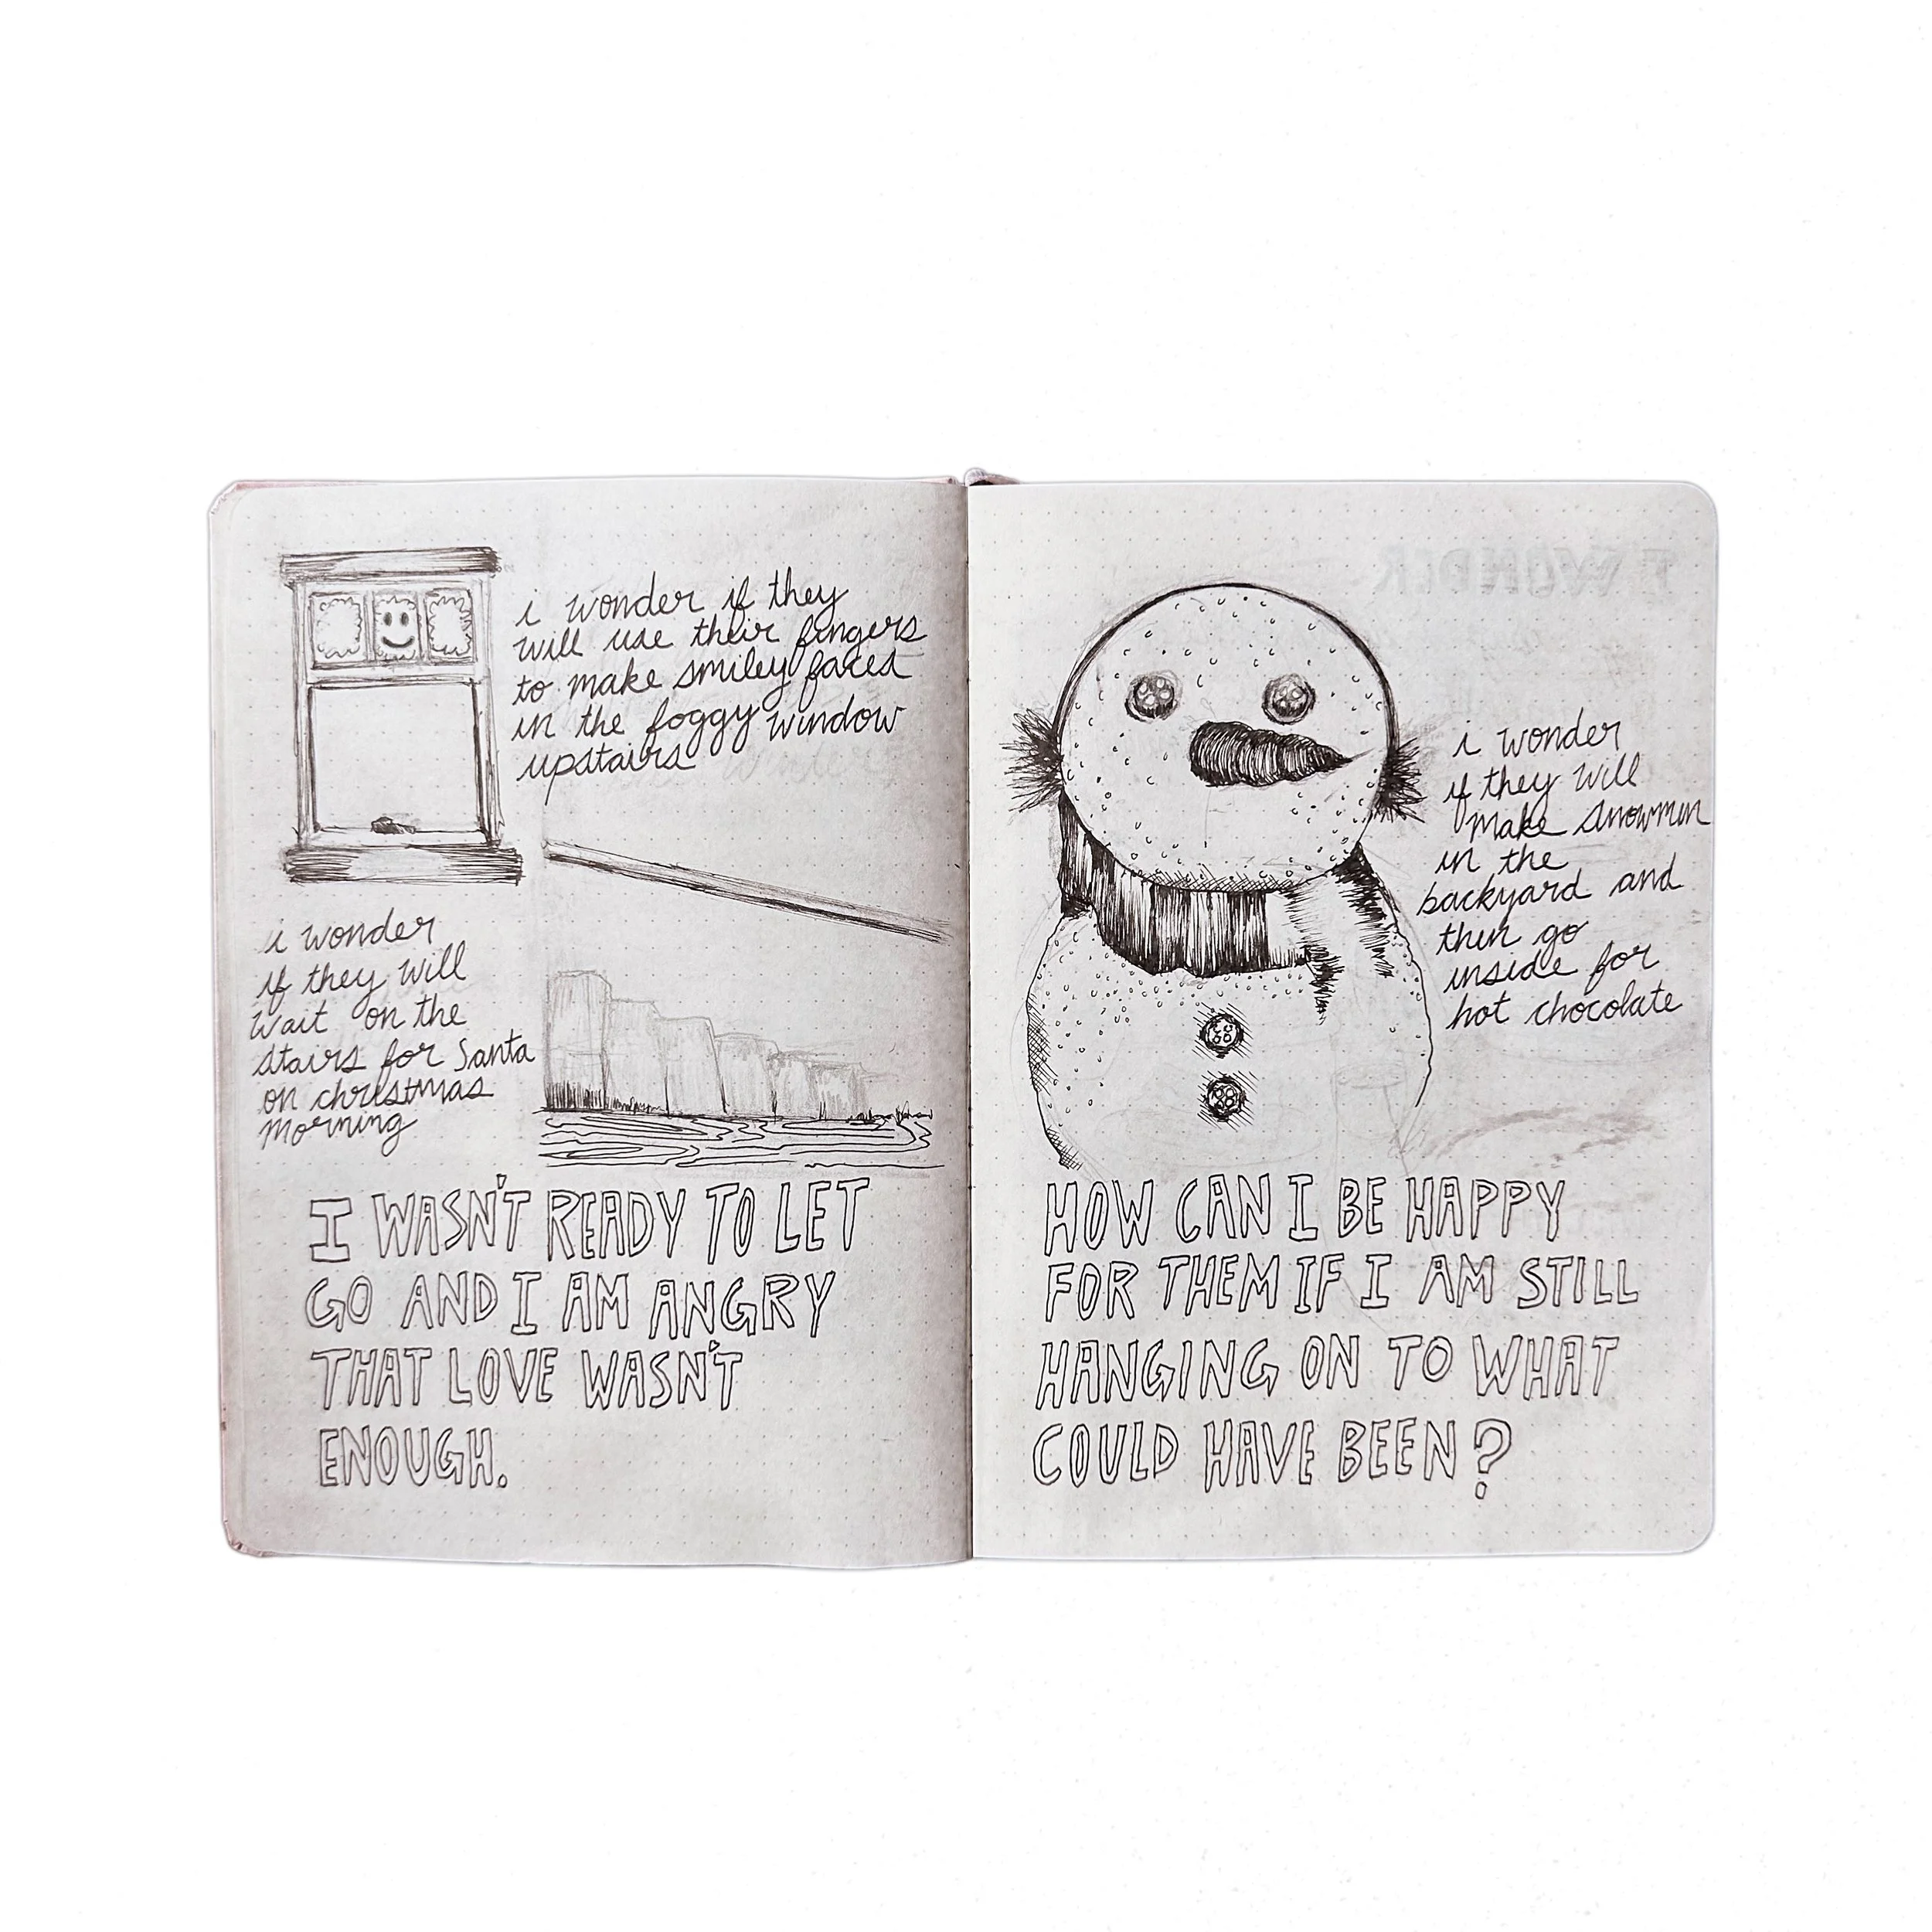 i wonder if they
will use their fingers
to make smiley faces
in the foggy window
upstairs
i wonder
if they will
wait on the
stairs for Santa
on christmas
morning
I WASN'T READY TO LET
GO AND I AM ANGRY
THAT LOVE WASN'T
ENOUGH.
I WONDER
i wonder
if they will
make snowmen
in the
backyard and
then go
inside for
hot chocolate
HOW CAN I BE HAPPY
FOR THEM IF I AM STILL
HANGING ON TO WHAT
COULD HAVE BEEN?